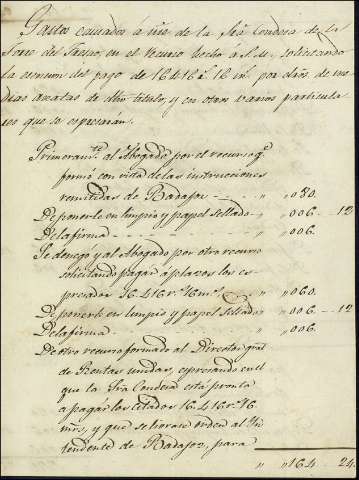 Gastos causados á ins.ª de la Sra. Condesa de la
Torre del Fresno, en el recurso hecho á S.M. solicitando
la esencion del pago de 16.416 r.s 16 m.s por dros de me-
dias anatas de dho titulo, y en otros varios particula-
res que se espresarán.
Primeram.te al Abogado por el recurso q.e
formó con vista de las instrucciones
remitidas de Badajoz " 080.
De ponerle en limpio y papel sellado " 006 - 12
De la firma " 006.
Se denegó y al Abogado por otro recurso
solicitando pagar á plazos los es-
presados 16.416 r.s 16 m.s " " 060.
De ponerle en limpio y papel sellado " 006 - 12.
De la firma " " 006.
De otro recurso formado al Director gral
de Rentas unidas, espresando en él
que la Sra Condesa está pronta
a pagár los citados 16.416 r.s 16
mrs, y que se librase orden al In-
tendente de Badajoz, para
" " 164 - 24.